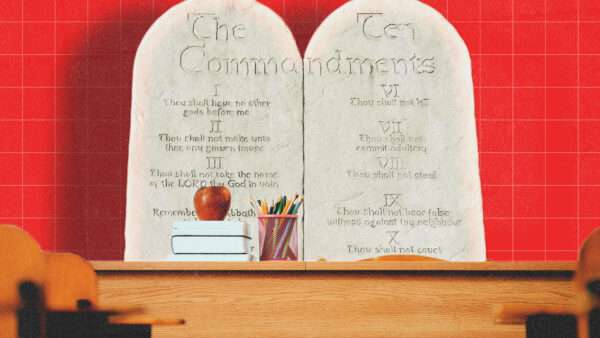 The Ten
Commandments
I
Thou shalt have no other
gods before me
II
Thou shalt not make unto
thee any graven image
III
Thou shalt not take the name
of the LORD thy God in vain
Remember
VI
Thou shalt not kill
VII
Thou shalt not
commit adultery
VIII
Thou shalt not steal
IX
Thou shalt not bear false
witness against thy neighbour
X
Thou shalt not covet